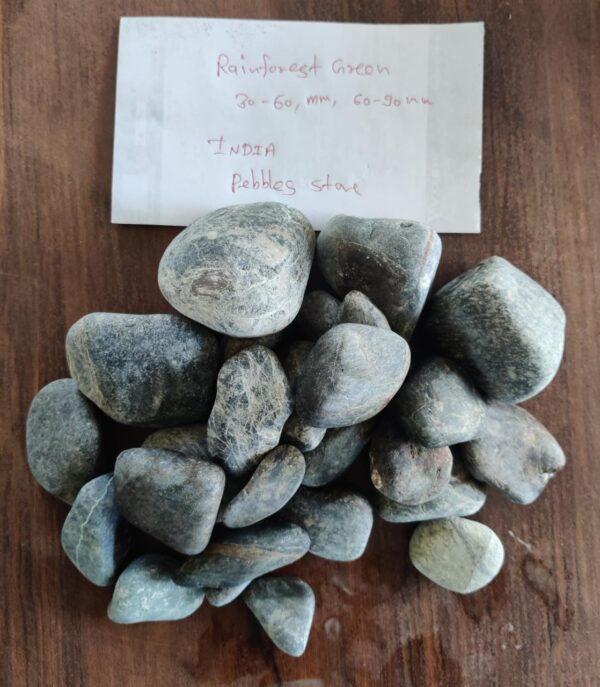 Rainforest Green
30-60, mm, 60-90 mm
INDIA
Pebbles stone